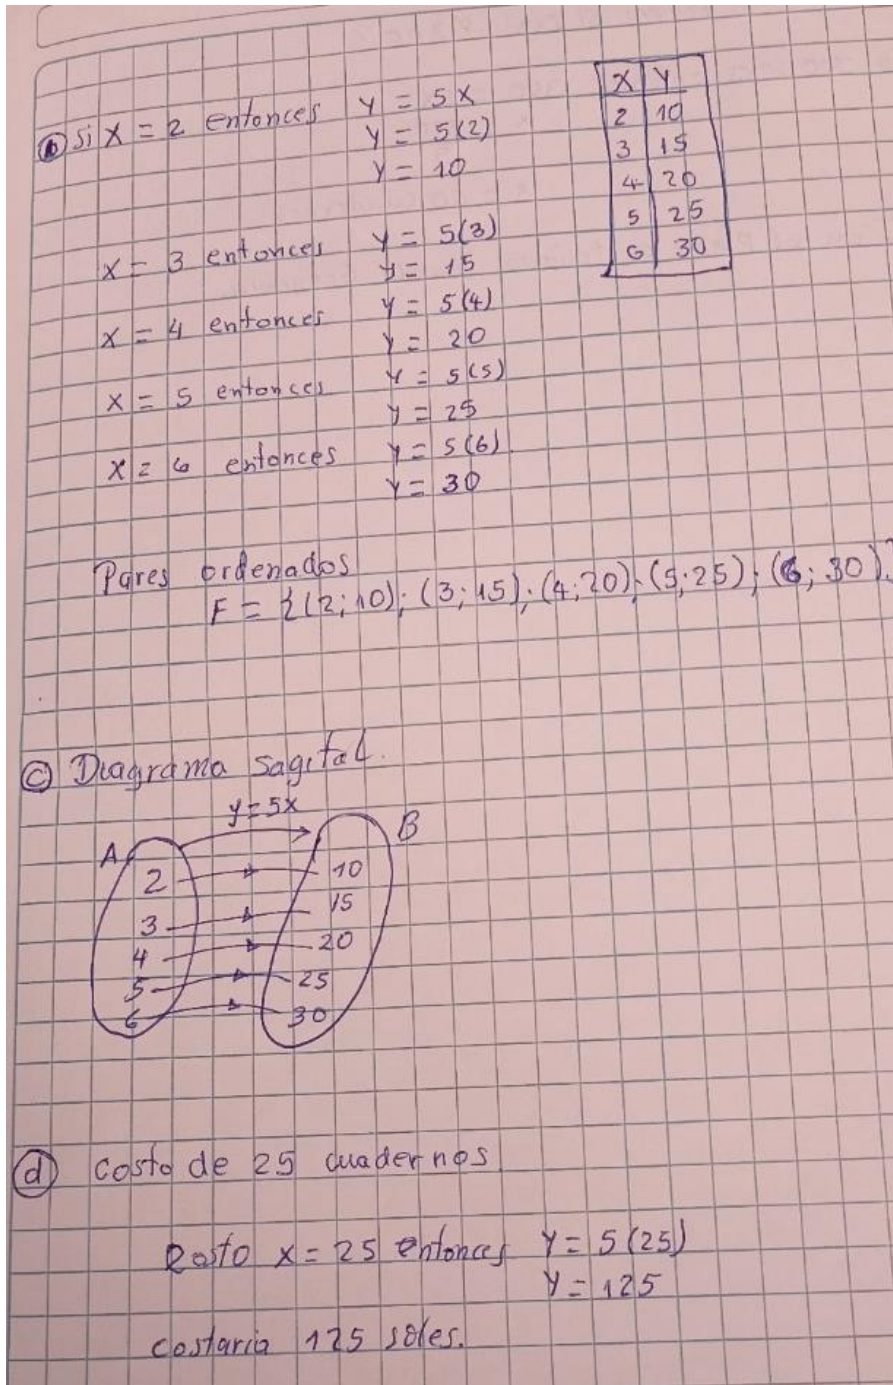 b) Si X = 2 entonces Y = 5X
Y = 5(2)
Y = 10
X = 3 entonces Y = 5(3)
Y = 15
X = 4 entonces Y = 5(4)
Y = 20
X = 5 entonces Y = 5(5)
Y = 25
X = 6 entonces Y = 5(6)
Y = 30
X Y
2 10
3 15
4 20
5 25
6 30
Pares ordenados
F = {(2;10); (3;15); (4;20); (5;25); (6;30)}
c) Diagrama sagital.
y = 5x
A B
2 10
3 15
4 20
5 25
6 30
d) costo de 25 cuadernos
x = 25 entonces Y = 5(25)
Y = 125
costaria 125 soles.